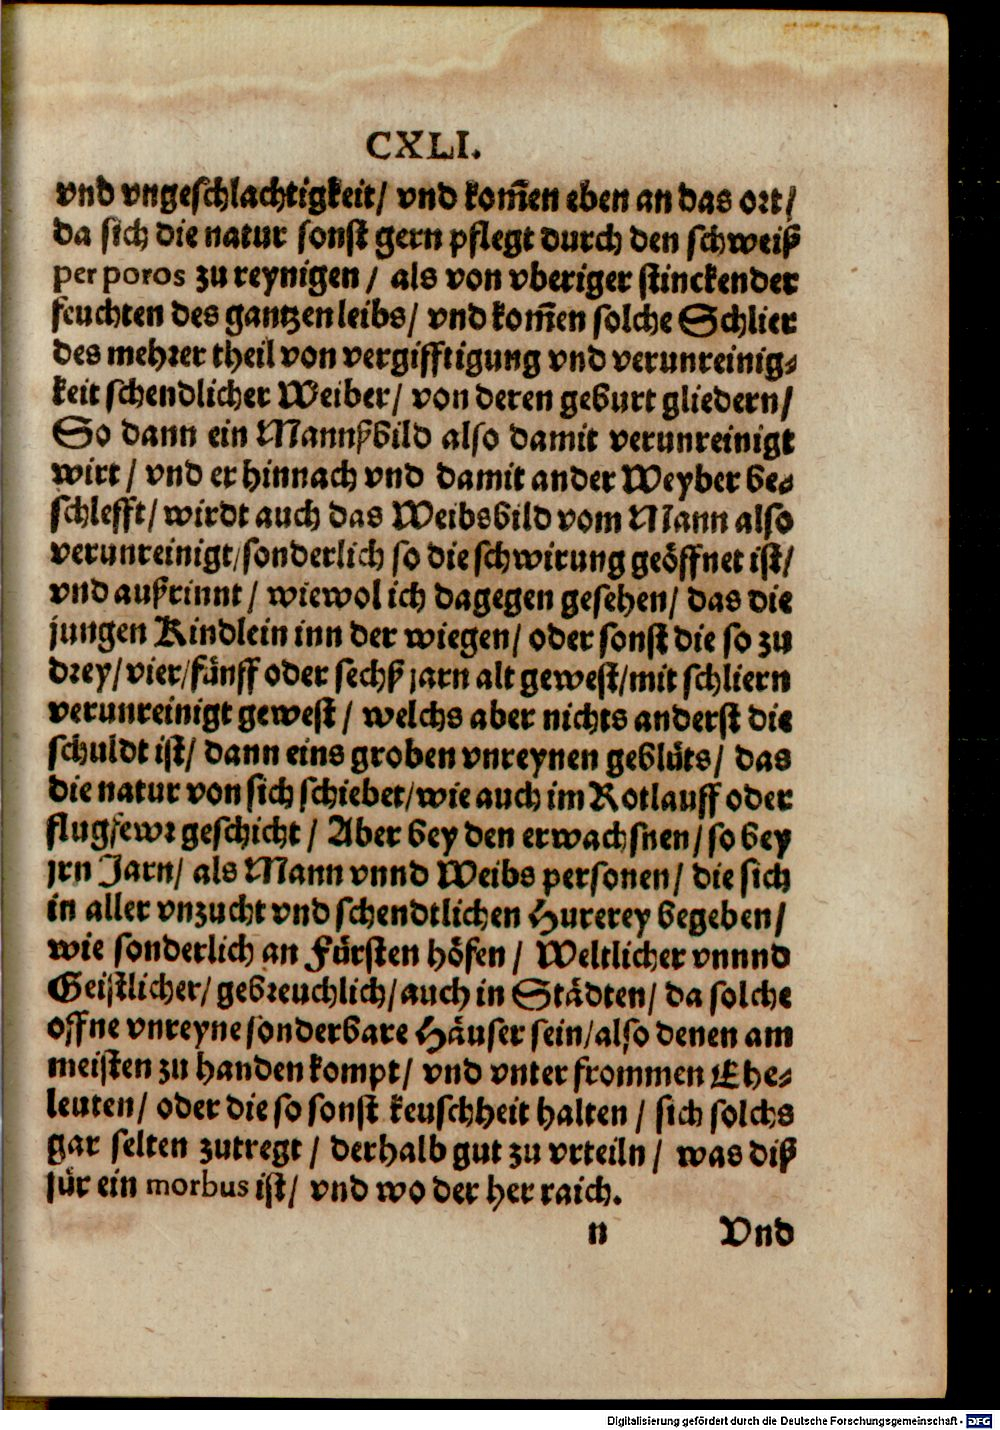 CXLI.
vnd vngeschlachtigkeit/ vnd kom̃en eben an das ort/
da sich die natur sonst gern pflegt durch den schweiß
per poros zu reynigen / als von vberiger stinckender
feuchten des gantzen leibs/ vnd kom̃en solche Schlier
des mehrer theil von vergifftigung vnd verunreinig⸗
keit schendlicher Weiber/ von deren geburt gliedern/
So dann ein Mannßbild also damit verunreinigt
wirt / vnd er hinnach vnd damit ander Weyber be⸗
schlefft/ wirdt auch das Weibsbild vom Mann also
verunreinigt/sonderlich so die schwirung geöffnet ist/
vnd außrinnt / wiewol ich dagegen gesehen/ das die
jungen Kindlein inn der wiegen/ oder sonst die so zu
drey/ vier/fünff oder sechß jarn alt gewest/mit schliern
verunreinigt gewest / welchs aber nichts anderst die
schuldt ist/ dann eins groben vnreynen geblüts/ das
die natur von sich schiebet/wie auch im Rotlauff oder
flugfewr geschicht / Aber bey den erwachsnen/ so bey
jrn Jarn/ als Mann vnnd Weibs personen/ die sich
in aller vnzucht vnd schendtlichen Hurerey begeben/
wie sonderlich an Fürsten höfen / Weltlicher vnnnd
Geistlicher/ gebreuchlich/ auch in Städten/ da solche
offne vnreyne sonderbare Häuser sein/also denen am
meisten zu handen kompt/ vnd vnter frommen Ehe⸗
leuten/ oder die so sonst keuschheit halten / sich solchs
gar selten zutregt / derhalb gut zu vrteiln/ was diß
für ein morbus ist/ vnd wo der her raich.
n Vnd
Digitalisierung gefördert durch die Deutsche Forschungsgemeinschaft - DFG